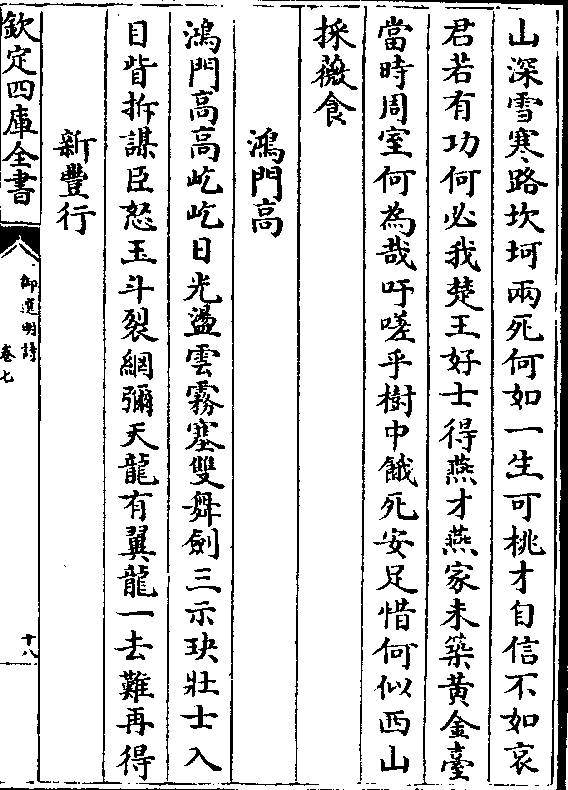 山深雪寒路坎坷兩死何如一生可桃才自信不如哀
君若有功何必我楚王好士得燕才燕家未築黄金臺
當時周室何為哉吁嗟乎樹中餓死安足惜何似西山
採薇食
鴻門高
鴻門高高屹屹日光盪雲霧塞雙舞劍三示玦壯士入
目眥拆謀臣怒玉斗裂網彌天龍有翼龍一去難再得
新豐行
欽定四庫全書
御選明詩
卷七
十八